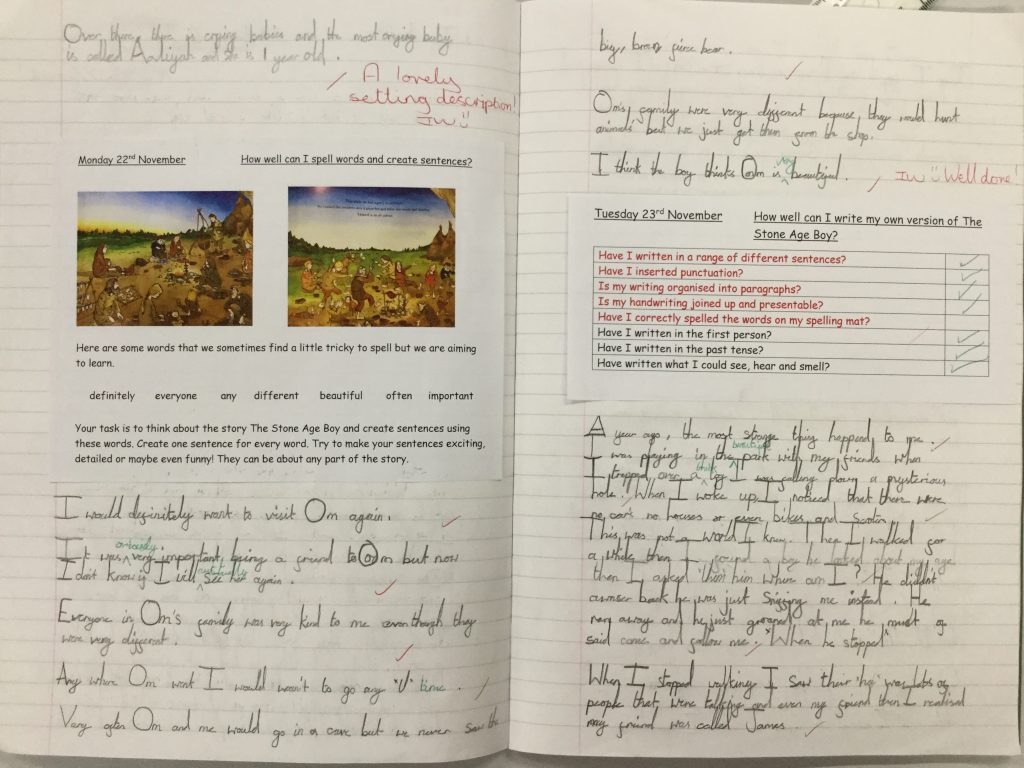 Over there, there is crying babies and the most crying baby
is called Aaliyah and she is 1 year old.
A lovely
setting description!
JW
Monday 22nd November
How well can I spell words and create sentences?
Here are some words that we sometimes find a little tricky to spell but we are aiming
to learn.
definitely everyone any different beautiful often important
Your task is to think about the story The Stone Age Boy and create sentences using
these words. Create one sentence for every word. Try to make your sentences exciting,
detailed or maybe even funny! They can be about any part of the story.
I would definitely want to visit Om again.
It was very important, being a friend to Om but now
I don't know if I will see her again.
Everyone in Om's family was very kind to me eventhough they
were very different.
Any where Om went I would wan't to go any "V" time.
Very often Om and me would go in a cave but we never saw the
big, brown fierce bear.
Om's, family were very different because, they would hunt
animals but we just got them from the shop.
I think the boy thinks Om is very beautiful.
JW Well done!
Tuesday 23rd November
How well can I write my own version of The
Stone Age Boy?
Have I written in a range of different sentences?
Have I inserted punctuation?
Is my writing organised into paragraphs?
Is my handwriting joined up and presentable?
Have I correctly spelled the words on my spelling mat?
Have I written in the first person?
Have I written in the past tense?
Have written what I could see, hear and smell?
A year ago, the most strange thing happend to me.
I was playing in the park with my friends when
I tripped over a log I was falling down a mysterious
hole. When I woke up I noticed that there were
no cars no houses or even bikes and
This was not a world I knew. Then I walked for
a while then I found a boy he looked about my age
then I asked him where am I! He diddn't
awnser back he was just sniffing me instead. He
ran away and he just at me he
said come and follow me. When he stopped
When I stopped walking I saw their was lots of
people that were talking and even my friend then I realised
my friend was called James.